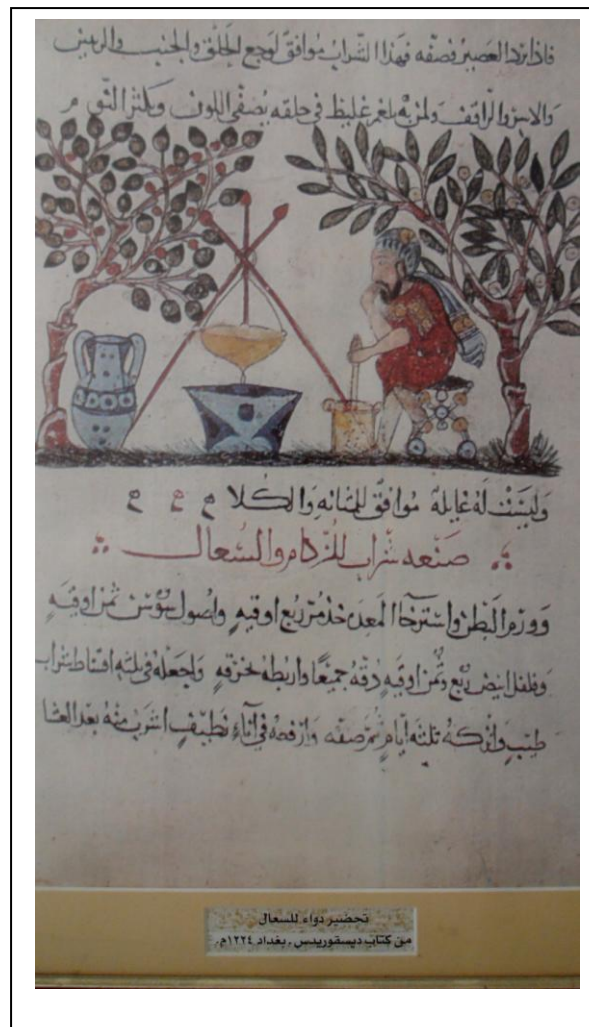 فاذا برد العصير فصفه فهذا الشراب موافق لوجع الحلق والجنب والرئتين
والاسر ولمن به بلغم غليظ في حلقه يصفى اللون ويكثر النوم
وليست له غايلة موافق للمثانه والكلا
صنعه شراب للزكام والسعال
وورم البطن واسترخا المعده خذ مر ربع اوقيه واصول سوسن ثمن اوقيه
وفلفل ابيض ربع وثمن اوقيه دقه جميعا واربطه بخرقه واجعله في ثلثه اقساط شراب
طيب واتركه ثلثه ايام ثم صفه وارفعه في اناء نظيف اشرب منه بعد العشا
تحضير دواء للسعال
من كتاب ديسقوريدس . بغداد ١٢٢٤م.